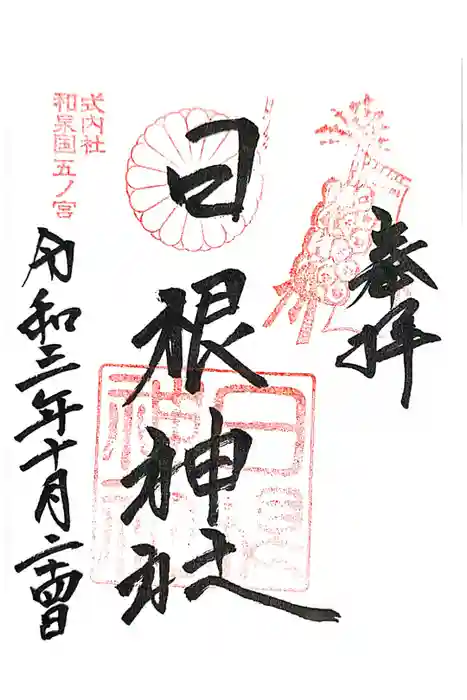 奉拝
日根神社
式内社
和泉国五ノ宮
日根神社
令和三年十月二十四日